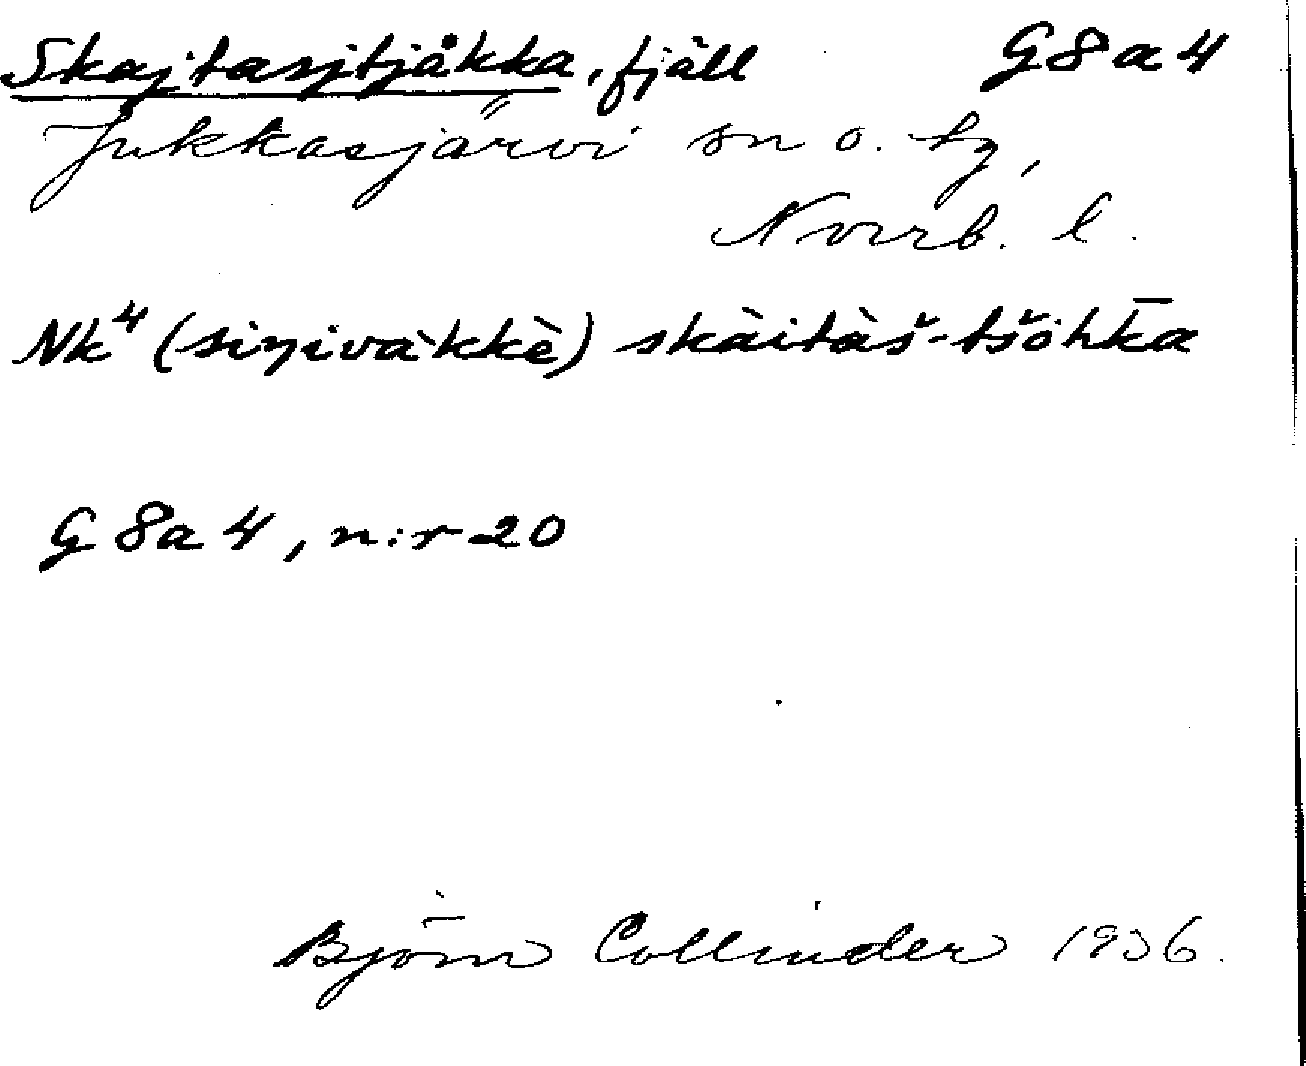 Skajtasjtjåkka, fjäll G8a4
Jukkasjärvi sn o. tg,
Norrb. l.
Nk⁴ (siŋivàkkè) skàitàš-tšòhk̄a
G 8a 4, n:r 20
Björn Collinder 1936.